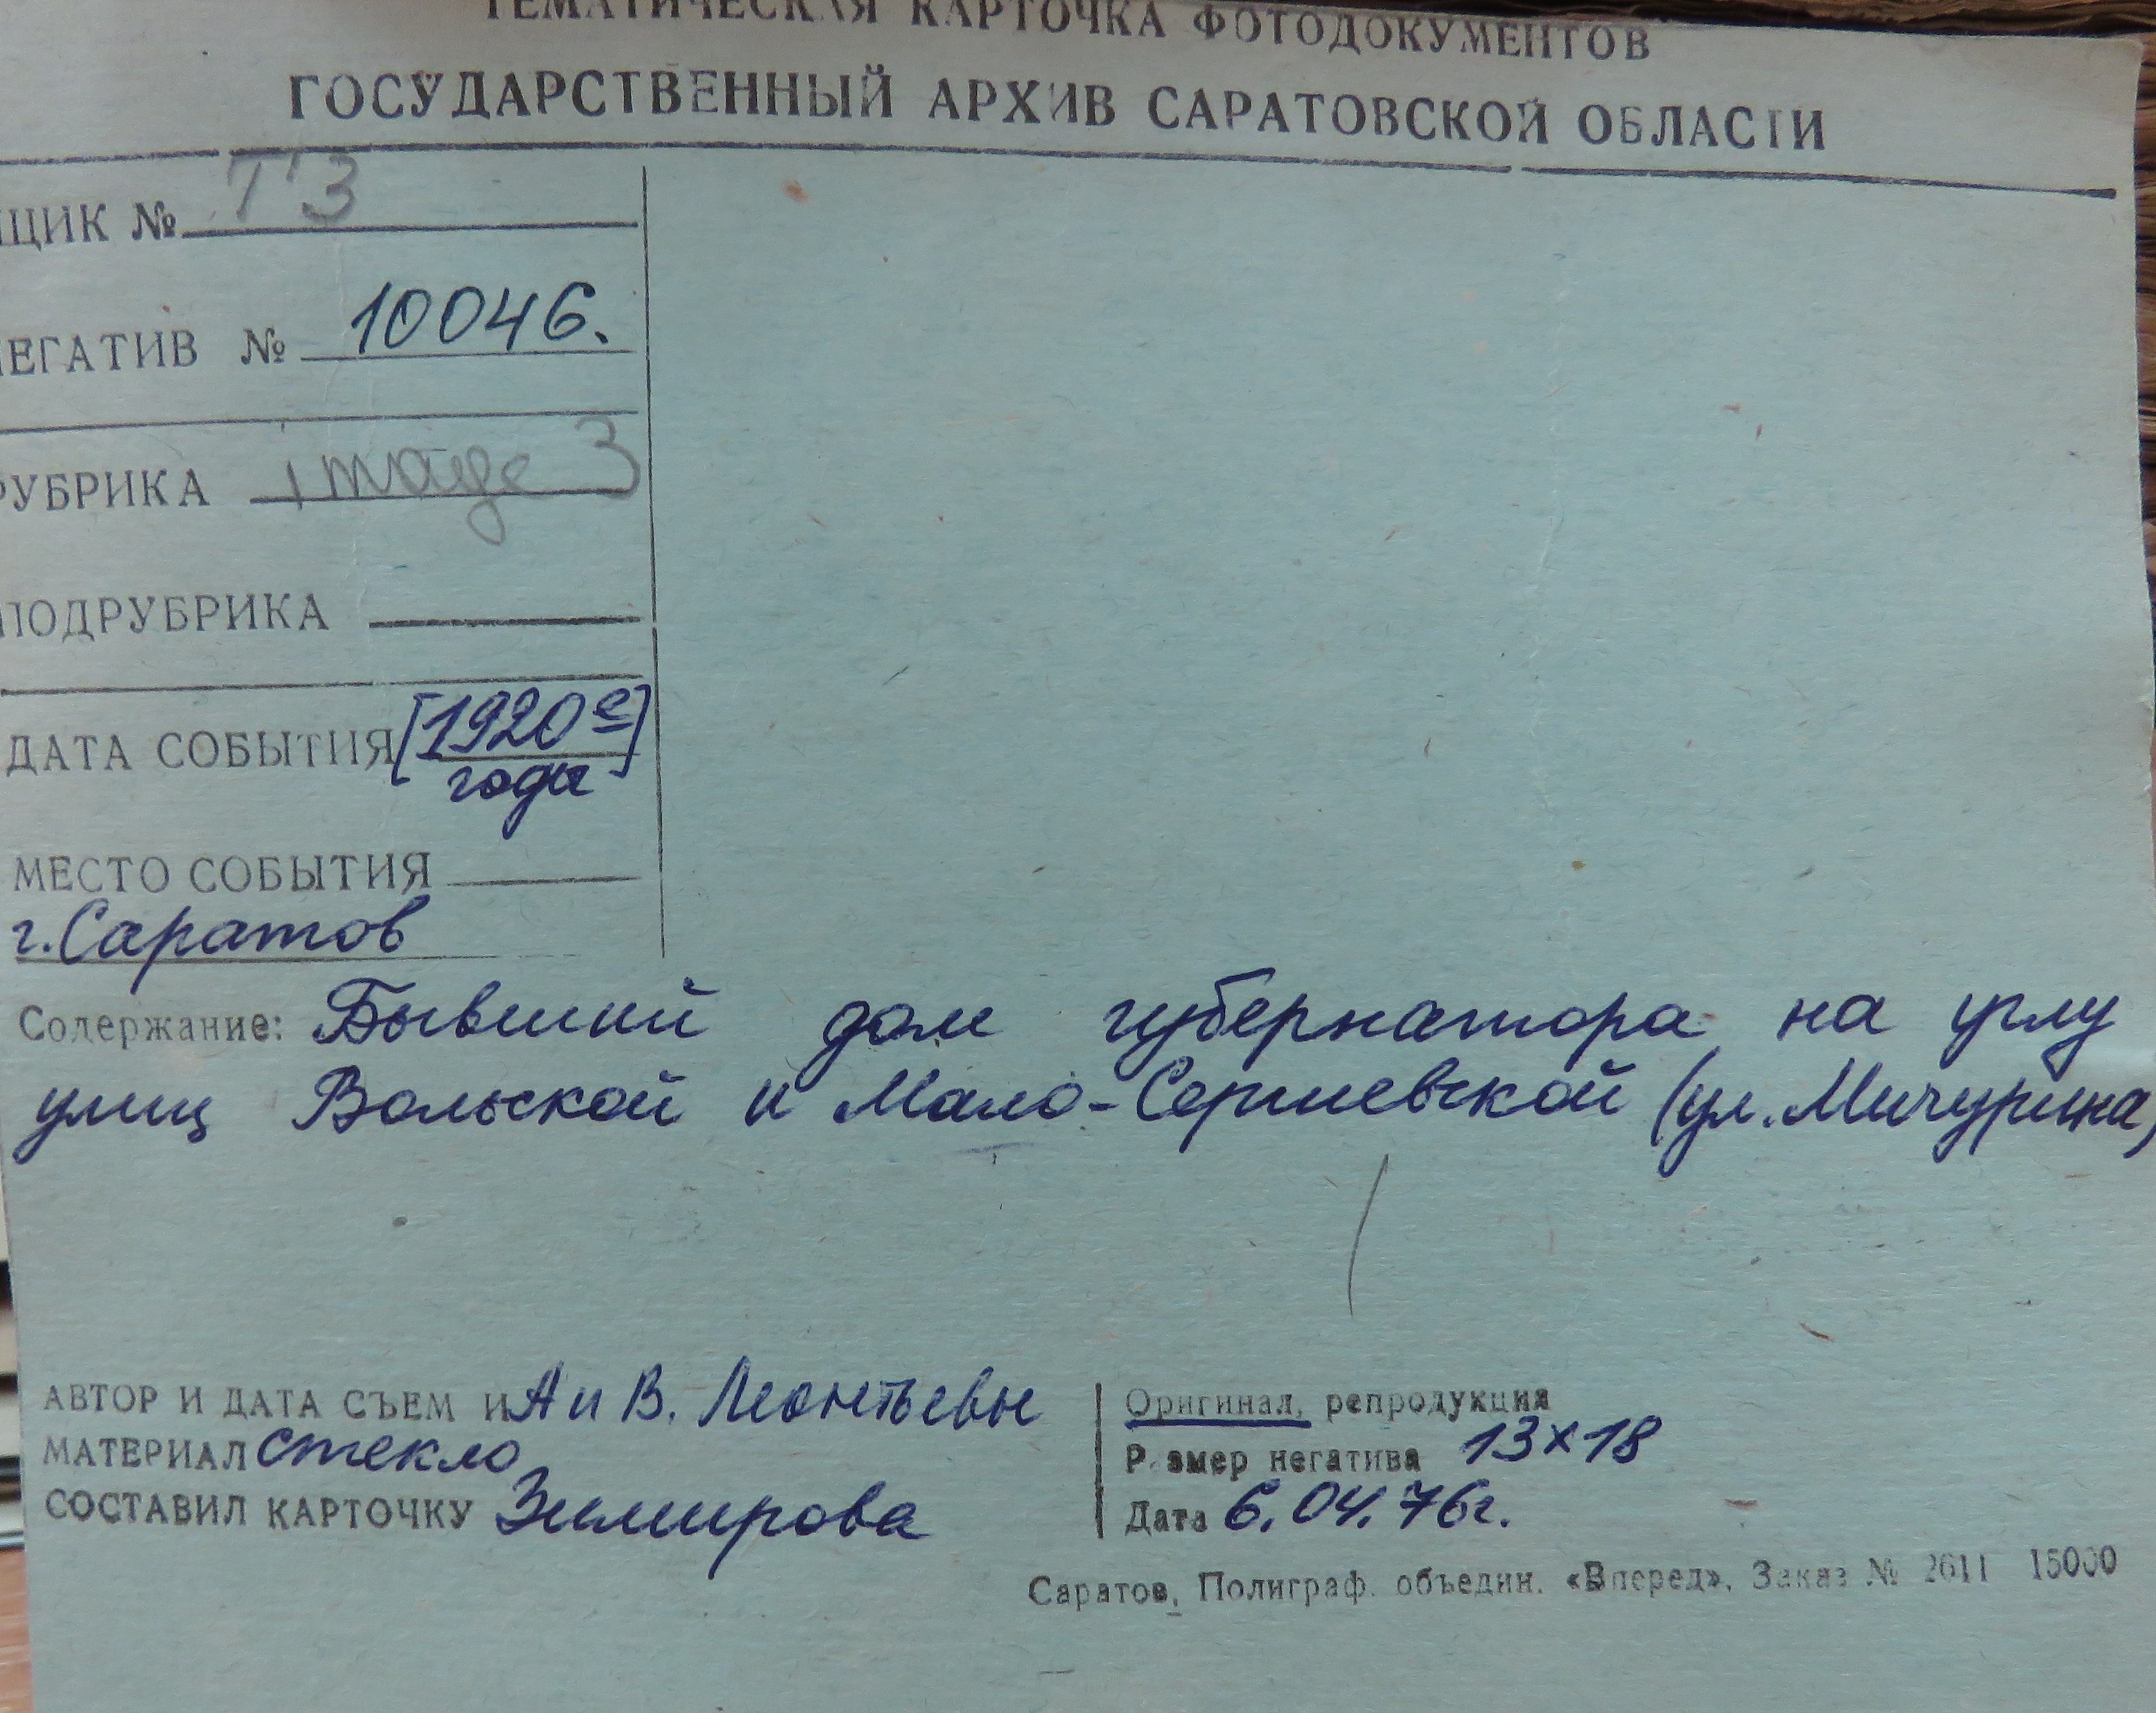 ТЕМАТИЧЕСКАЯ КАРТОЧКА ФОТОДОКУМЕНТОВ
ГОСУДАРСТВЕННЫЙ АРХИВ САРАТОВСКОЙ ОБЛАСТИ
ЩИК № Т 3
НЕГАТИВ № 10046.
РУБРИКА image 3
ПОДРУБРИКА
ДАТА СОБЫТИЯ [1920е
годы]
МЕСТО СОБЫТИЯ
г. Саратов
Содержание: Бывший дом губернатора на углу
улиц Вольской и Мало-Сергиевской (ул. Мичурина)
АВТОР И ДАТА СЪЕМ И А и В. Леонтьевы
МАТЕРИАЛ стекло
СОСТАВИЛ КАРТОЧКУ Зимирова
Оригинал, репродукция
Размер негатива 13х18
Дата 6.04.76г.
Саратов, Полиграф. объедин. «Вперед». Заказ № 2611 15000